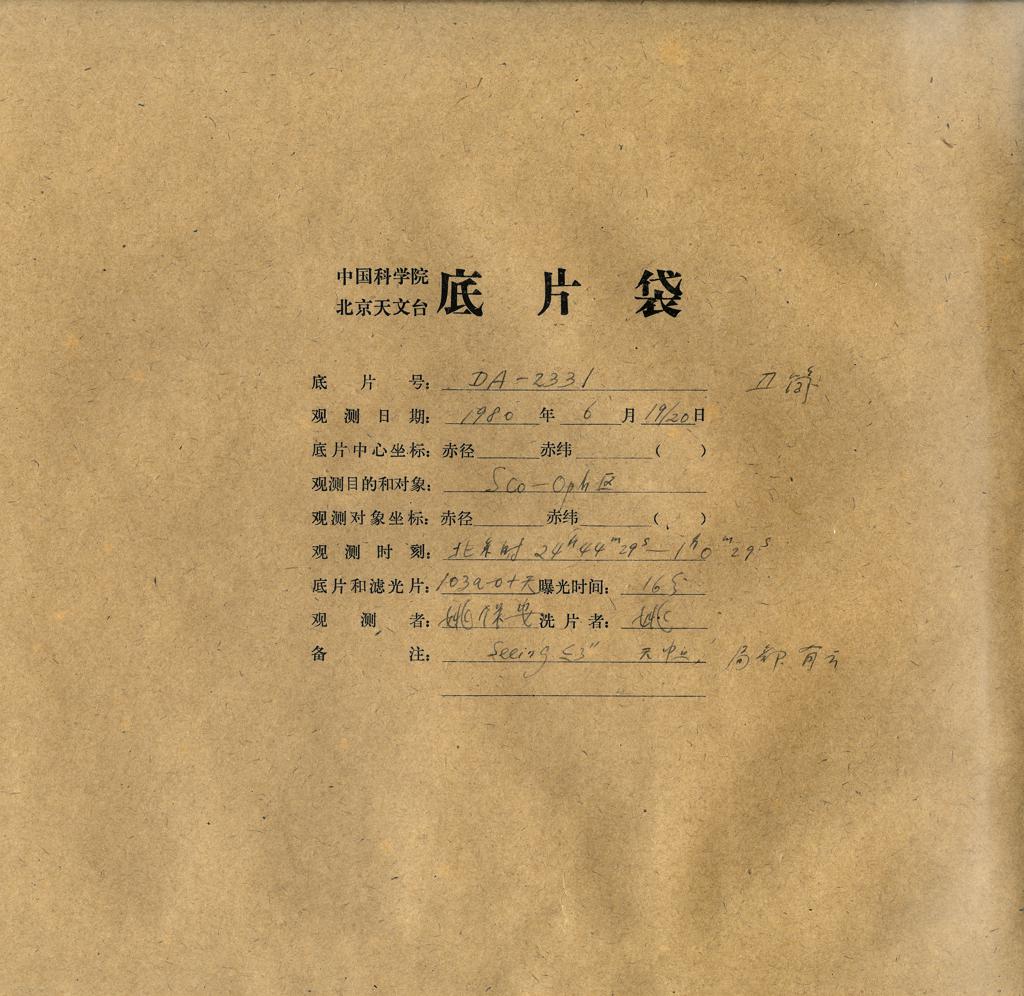 中国科学院
北京天文台 底片袋
底片号: DA-2331
观测日期: 1980 年 6 月 19/20 日
底片中心坐标: 赤径 赤纬 ( )
观测目的和对象: Sco-Oph 区
观测对象坐标: 赤径 赤纬 ( )
观测时刻: 北京时 24h44m29s-1h0m29s
底片和滤光片: 103a-0+无 曝光时间: 16分
观测者: 姚保安 洗片者: 姚
备注: Seeing ≤3" 局部有云